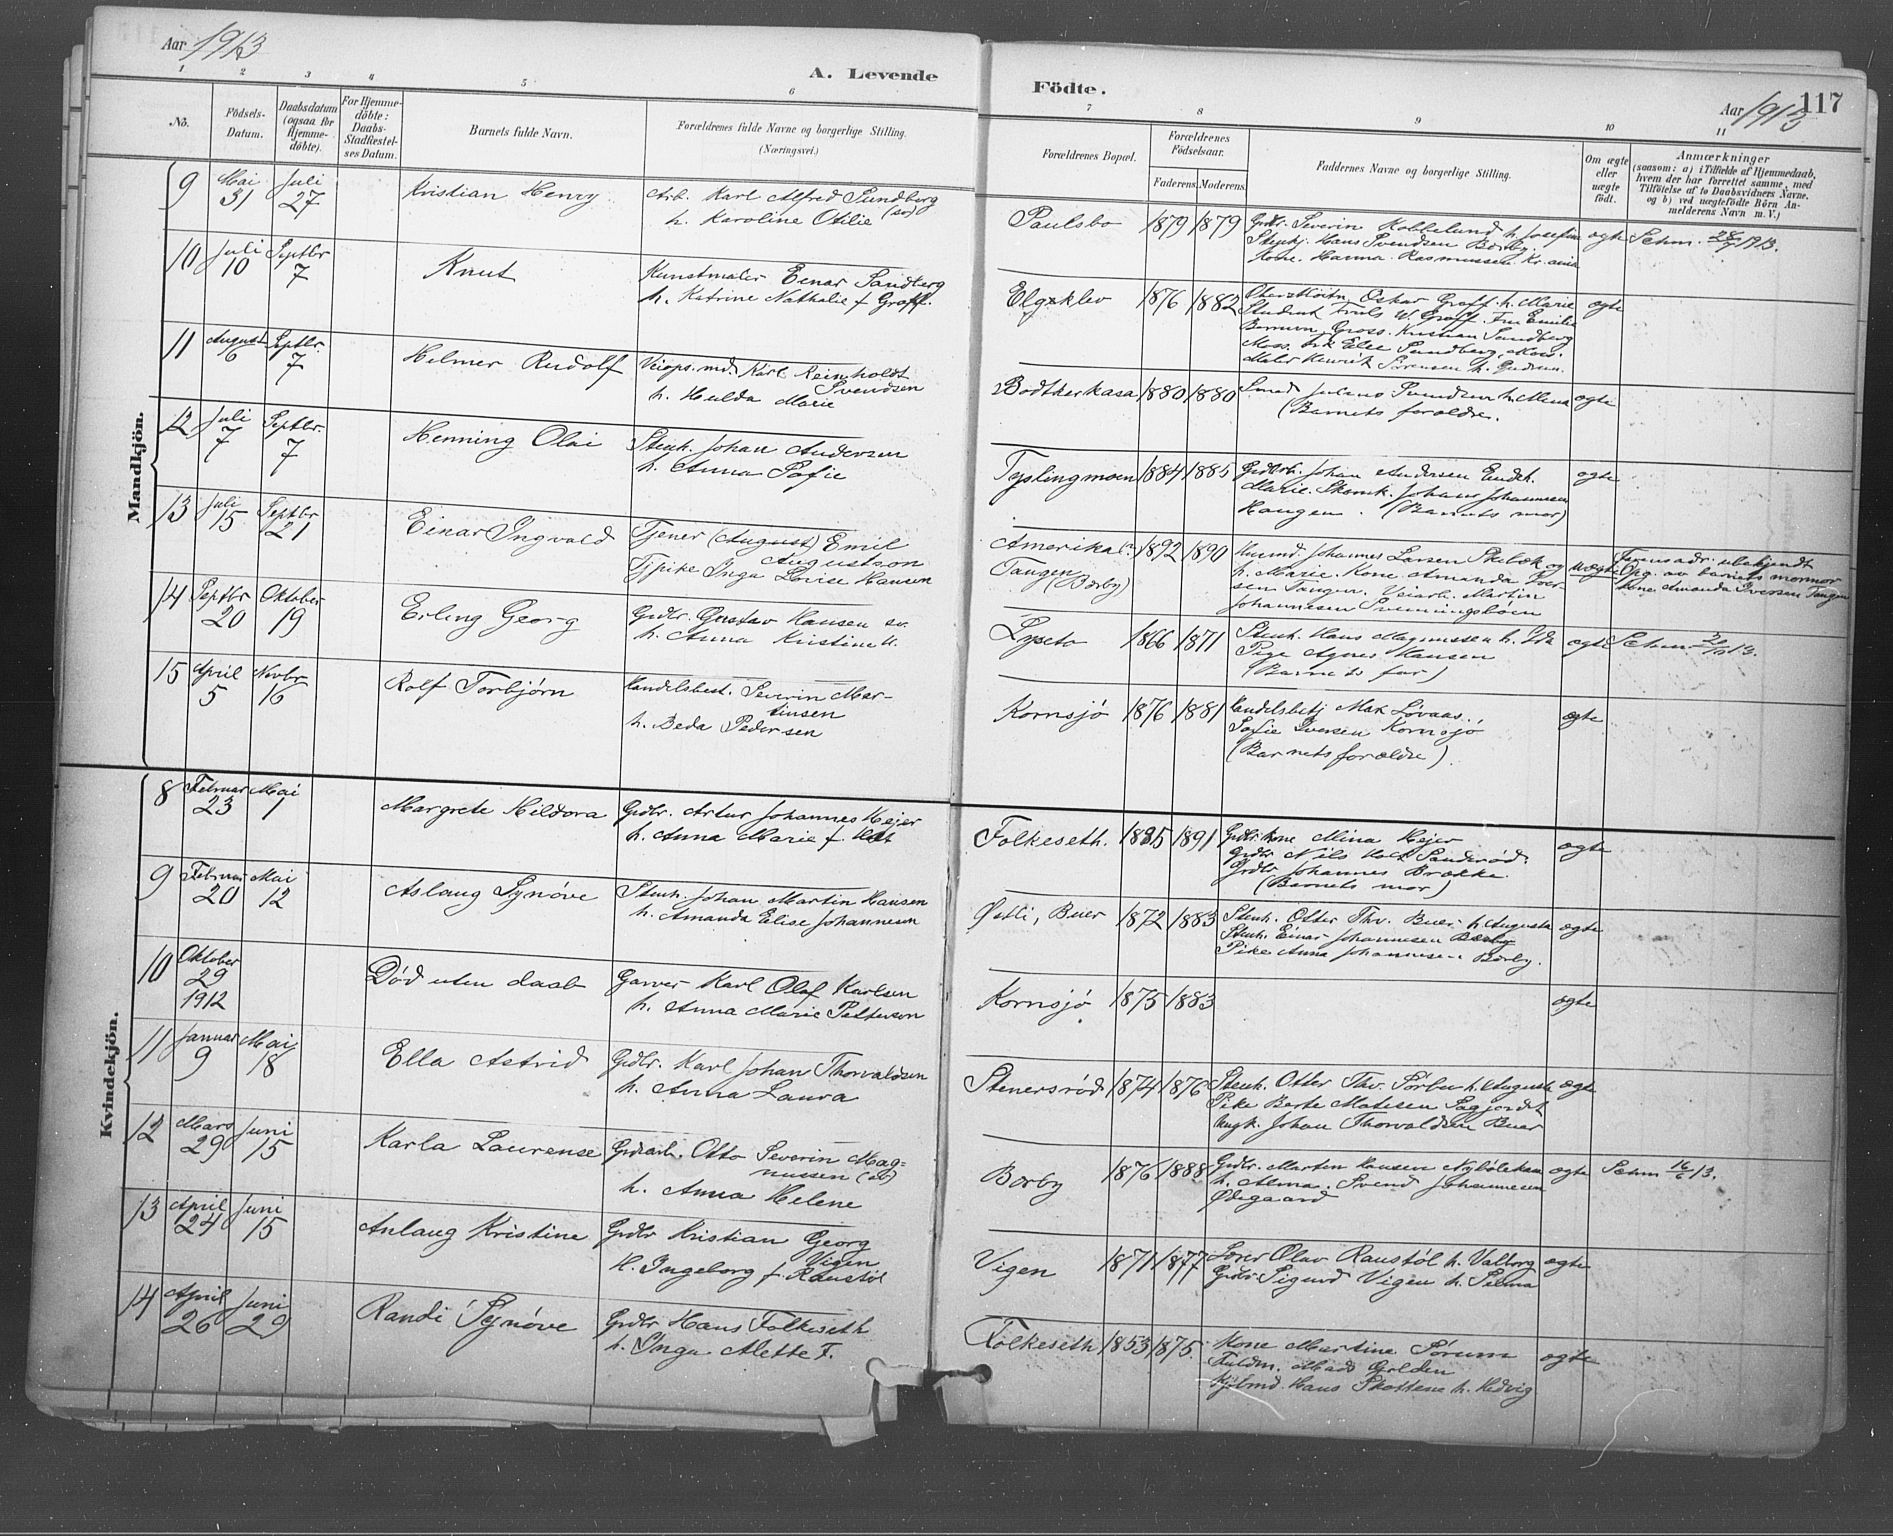 Aar 1913
A. Levende
Födte.
Aar 1913
117
1 2 3 4 5 6 7 8 9 10 11
No.
Födsels-
Datum.
Daabsdatum
(ogsaa for
Hjemme-
döbte).
For Hjemme-
döbte:
Daabs-
Stadfæstel-
ses Datum.
Barnets fulde Navn.
Forældrenes fulde Navne og borgerlige Stilling.
(Næringsvei.)
Forældrenes Bopæl.
Forældrenes
Födselsaar.
Faderens. Moderens.
Faddernes Navne og borgerlige Stilling.
Om ægte
eller
uægte
født.
Anmærkninger
(saasom: a) i Tilfælde af Hjemmedaab,
hvem der har forrettet samme, med
Tilföielse af to Daabsvidners Navne,
og b) ved uægtefödte Börn An-
melderens Navn m. V.)
Mandkjön.
9 Mai 31 Juli 27 Kristian Henry
Arb. Karl Alfred Sundberg (sv)
h. Karoline Otilie
Paulsbo 1879 1879
Grdbr. Severin Kobbelund h. Josefine
Stenhj. Hans Svendsen Børby.
Kone Hanna Rasmussen Kr.ania
ægte
Schm. 28/7 1913.
10 Juli 10 Septbr 7 Knut
Kunstmaler Einar Sandberg
h. Katrine Nathalie f Graff.
Elgeklev 1876 1882
Oskar Graff h. Marie
Student Truls W. Graff. Fru Emilie
Gross. Kristian Sundberg
Moss. Frk Else Sundberg, Moss.
Maler Henrik Sørensen h. Gudrun.
ægte
11 August 6 Septbr. 7 Helmer Rudolf
Veiops.md. Karl Reinholdt
Svendsen
h. Hulda Marie
Bodtkerkasa 1880 1880
Smed Julius Svendsen h. Mina
(Barnets forældre.
ægte
12 Juli 7 Septbr. 7 Henning Olai
Stenh. Johan Andersen
h. Anna Sofie
Tyslingmoen 1884 1885
Johan Andersen
Marie. Skomk. Johans Johannesen
Haugen. (Barnets mor)
ægte
13 Juli 15 Septbr 21 Einar Ingvald
Tjener (August) Emil
Augustson
Tjpike Inga Lovise Hansen
Amerika
Tangen (Børby) 1892 1890
Husmd. Johannes Larsen Skolæk og
h. Marie. Kone Amanda Iver-
sen Tangen. Veiarb. Martin
Johannesen
uægte
ubekjendt
Opg. av barnets mormor
kone Amanda Iversen Tangen
14 Septbr 20 Oktober 19 Erling Georg
Grdbr. Gustav Hansen sv.
h. Anna Kristine
Lyseto 1866 1871
Stenh. Hans Magnussen h. Ida
Pige Agnes Hansen
(Barnets far)
ægte
15 April 5 Novbr 16 Rolf Torbjörn
Handelsbest. Severin Mar-
tinsen
h. Beda Pedersen
Kornsjø 1876 1881
Handelsbetj Max Løvaas.
Sofie Iversen Kornsjø
(Barnets forældre).
ægte
Kvindekjön.
8 Februar 23 Mai 1 Margrete Hildora
Grdbr. Artur Johannes Hejer
h. Anna Marie f. Holt
Folkeseth. 1885 1891
Grdbr. kone Mina Hejer
Grdbr Nils Holt Sanderød.
Grdbr Johannes Brække.
(Barnets mor)
ægte
9 Februar 20 Mai 12 Aslaug Synöve
Stenh. Johan Martin Hansen
h. Amanda Elise Johannesen
Østli, Buer 1872 1883
Stenh. Otter Thv. Buer h Augusta
Stenh. Einar Johannesen Børby
Pike Anna Johannesen Børby.
ægte
10 Oktober 29 1912 Død uten daab
Garver Karl Olaf Karlsen
h. Anna Marie Petterson
Kornsjø 1875 1883
ægte
11 Januar 9 Mai 18 Ella Astrid
Grdbr. Karl Johan Thorvaldsen
h. Anna Laura
Stenersrød 1874 1876
Stenh. Otter Thv. Sørbu h. Augusta
Pike Berte Matisen
Ungk. Johan Thorvaldsen Buer
ægte
12 Mars 29 Juni 15 Karla Laurense
Grdarb. Otto Severin Mag-
nussen (sv)
h. Anna Helene
Børby 1876 1888
Grdbr. Martin Hansen
h. Alma. Svend Johannesen
Ødegaard
ægte
Schm 16/6 13.
13 April 24 Juni 15 Anlaug Kristine
Grdbr Kristian Georg
Vigen
h. Ingeborg f. Raustöl
Vigen 1871 1877
Lærer Olav Raustöl h. Valborg
Grdbr. Sigurd Vigen h. Selma
ægte
14 April 26 Juni 29 Randi Synöve
Grdbr Hans Folkeseth
h. Inga Alette F.
Folkeseth 1853 1875
Kone Martine Sørum
Fuldm. Mads Golden
Hans Skottene h. Hedvig
ægte